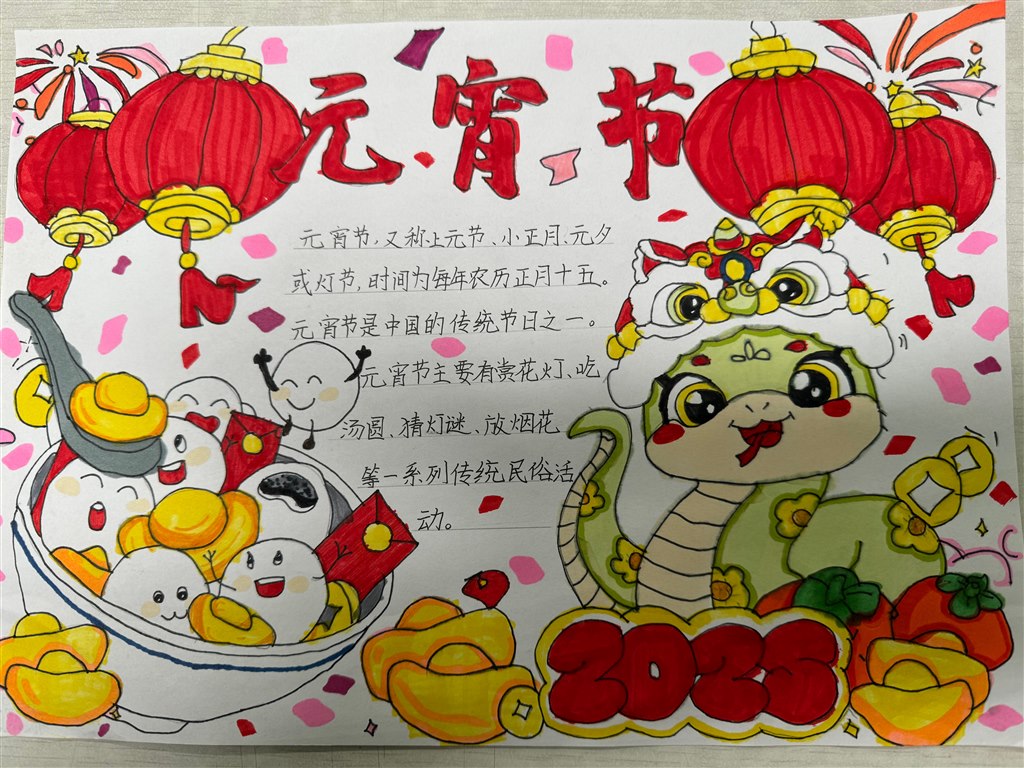 元宵节
元宵节,又称上元节、小正月、元夕
或灯节,时间为每年农历正月十五。
元宵节是中国的传统节日之一。
元宵节主要有赏花灯、吃
汤圆、猜灯谜、放烟花
等一系列传统民俗活
动。
2025